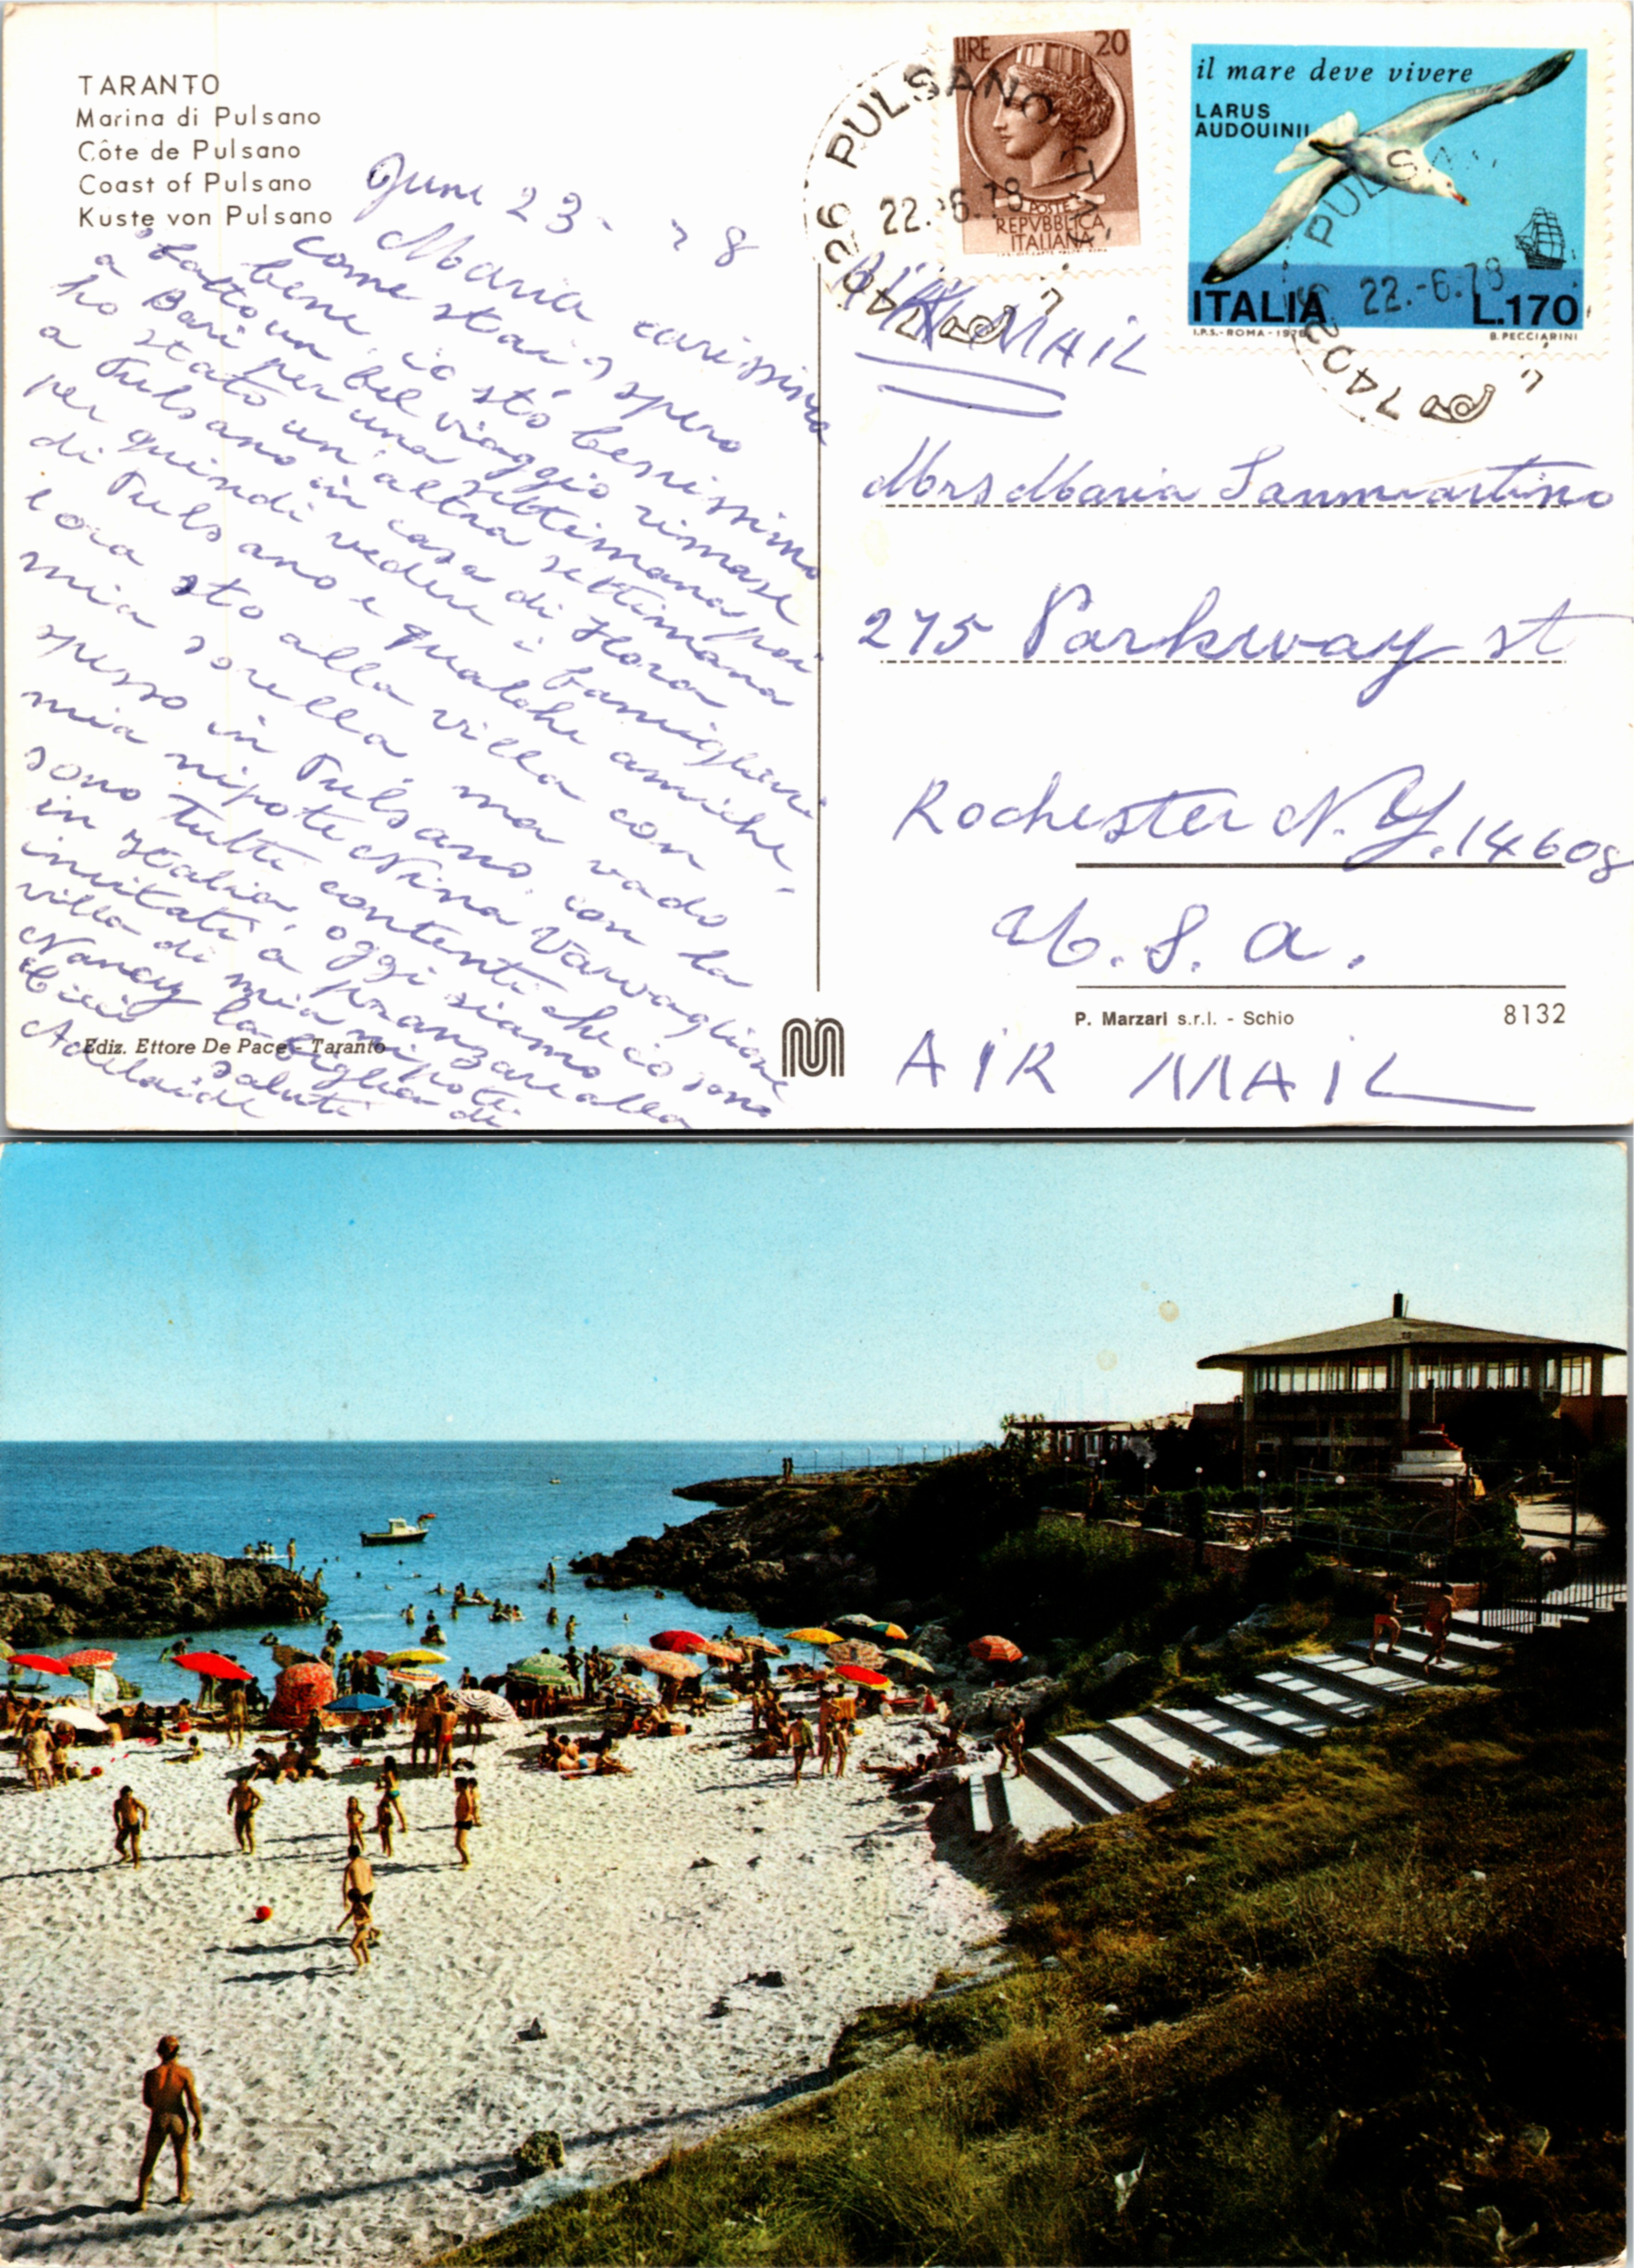 TARANTO
Marina di Pulsano
Côte de Pulsano
Coast of Pulsano
Kuste von Pulsano
June 23 - 78
Maria carissima
come stai, spero
bene, io stó benissimo
fatto un bel viaggio rimase
a Bari per una settimana poi
ho stato un'altra settimana
a Pulsano in casa di Flora
per quindi vedere i famigliari
di Pulsano e qualche amiche,
lora sto alla villa con
mia sorella ma vado
spesso in Pulsano, con la
mia nipote Nina Varvaglione
sono tutti contenti che io sono
in Italia, oggi siamo
invitati a pranzare alla
villa di mia nipote
Nancy la figlia di
Cici saluti
Adelaide
Ediz. Ettore De Pace - Taranto
LIRE 20
POSTE
REPVBBLICA
ITALIANA
74026 PULSANO (TA)
22.-6.78
il mare deve vivere
LARUS
AUDOUINII
ITALIA L.170
I.P.S.-ROMA-1978 B. PECCIARINI
PULSAN
22.-6.78
7402
AIR MAIL
Mrs Maria Sanmartino
275 Parkway st
Rochester N.Y. 14608
U.S.A.
P. Marzari s.r.l. - Schio 8132
AIR MAIL